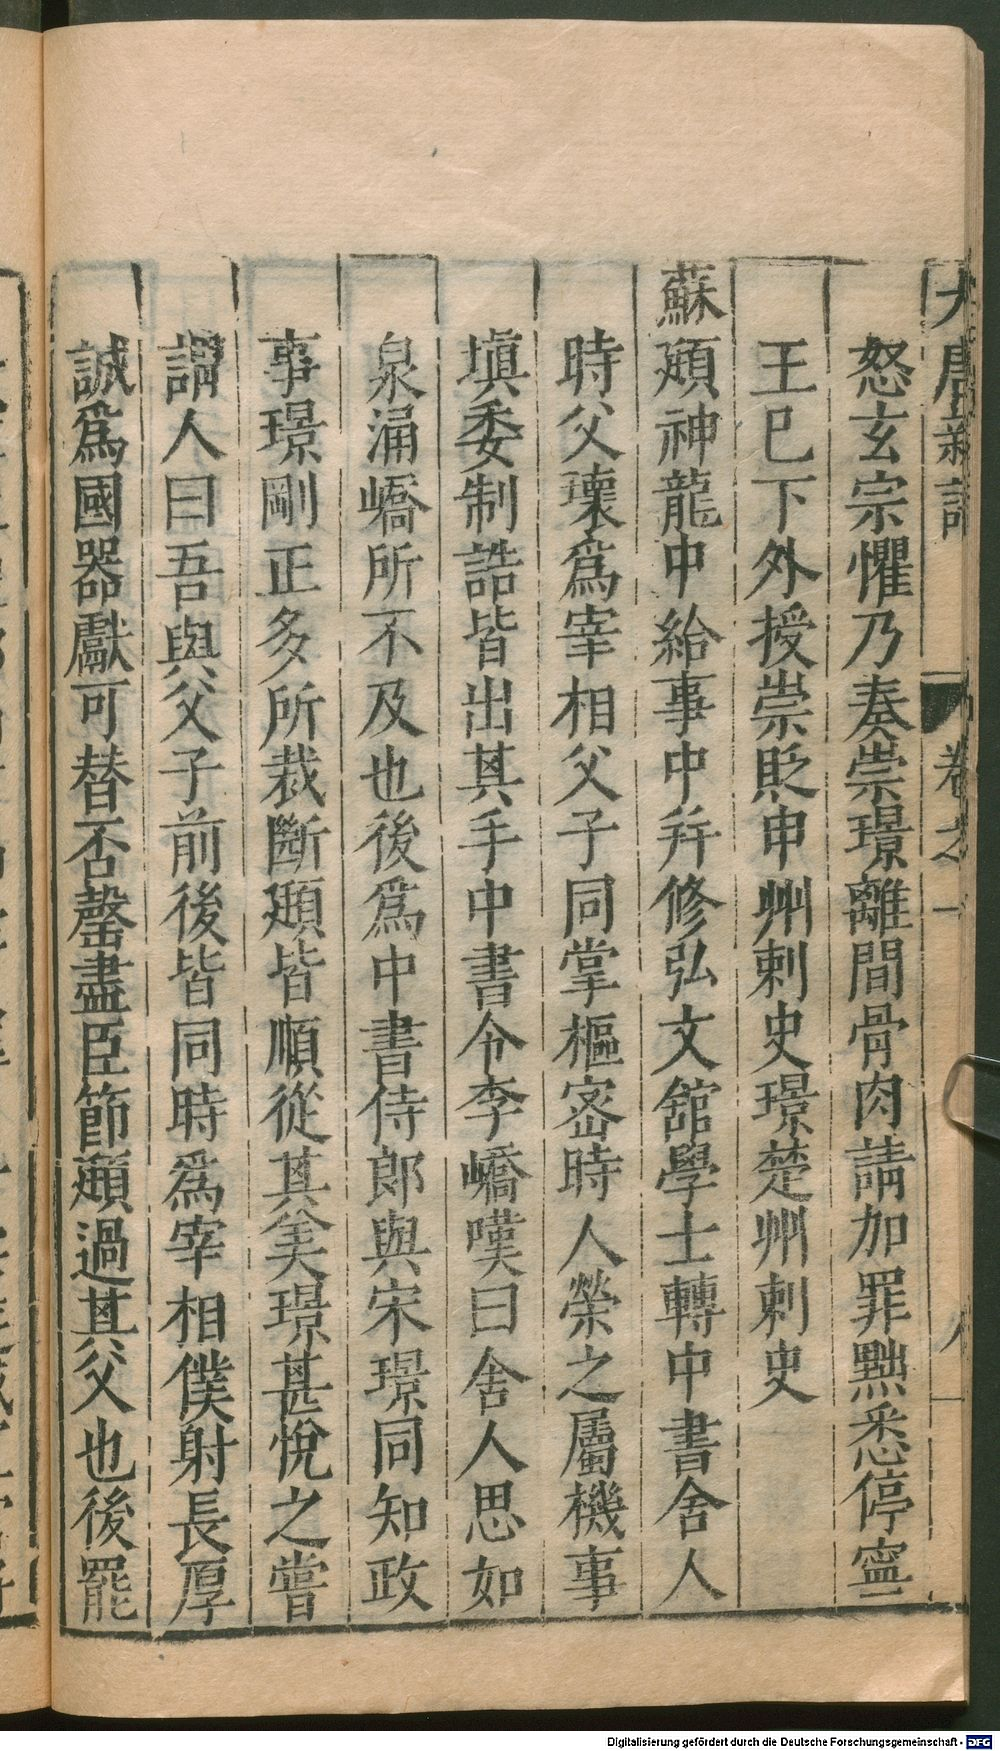 大唐新語 卷之一 八
怒玄宗懼乃奏崇璟離間骨肉請加罪黜悉停寧
王巳下外授崇貶申州刺史璟楚州刺史
蘇頲神龍中給事中并修弘文舘學士轉中書舍人
時父瓌爲宰相父子同掌樞宻時人榮之屬機事
塡委制誥皆出其手中書令李嶠嘆曰舍人思如
泉涌嶠所不及也後爲中書侍郎與宋璟同知政
事璟剛正多所裁斷頲皆順從其美璟甚悅之嘗
謂人曰吾與父子前後皆同時爲宰相僕射長厚
誠爲國器獻可替否罄盡臣節頲過其父也後罷
Digitalisierung gefördert durch die Deutsche Forschungsgemeinschaft - DFG